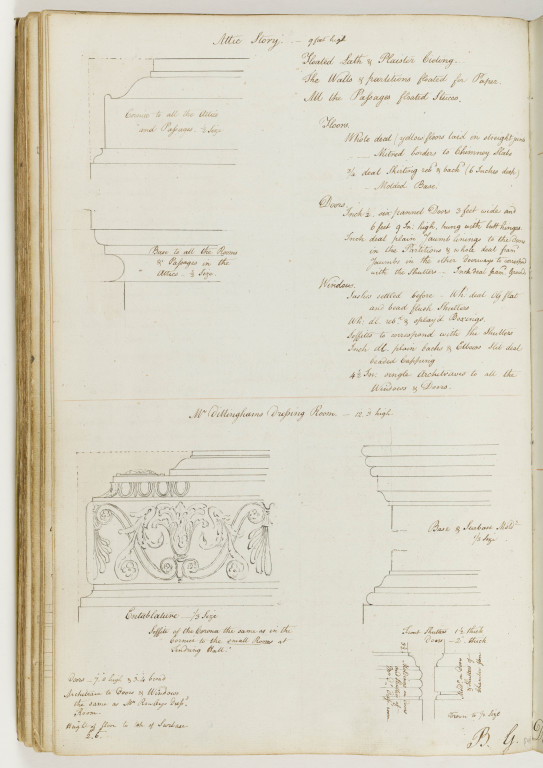 Attic Story. — 9 feet high
Floated Lath & Plaister Cieling.
The Walls & partitions floated for Paper
All the Passages floated Stucco.
Cornice to all the Attics
and Passages. ½ Size
Floors.
Whole deal (yellow) floors laid on straight joints
Mitred borders to Chimney Slabs
¾ deal Skirting reb.d & back.d (6 Inches deep)
Molded Base.
Base to all the Rooms
& Passages in the
Attics - ½ Size.
Doors.
Inch ½ six pannel Doors 3 feet wide and
6 feet 9 In: high, hung with butt hinges
Inch deal plain Jaumb linings to the doors
in the Partitions & whole deal fram.d
Jaumbs in the other doorways to correspond
with the Shutters - Inch deal fram.d Grounds
Windows.
Sashes settled before - Wh. deal flat
and bead flush Shutters
Wh. dl. reb.d & splay'd Boxings.
Soffites to correspond with the Shutters
Inch dl. plain backs & Elbows slit deal
beaded Capping
4½ In: single Architraves to all the
Windows & Doors.
Mr Dillinghams Dressing Room — 12.3 high.
Base & Surbase Mold.s
½ Size
Entablature - ⅓ Size
Soffite of the Corona the same as in the
Cornice to the small Room at
Tendring Hall.
Front Shutters 1½ thick
Doors - 2 thick
Doors - 7.0 high & 3.4 broad
Architrave to Doors & Windows
the same as Mr Rowleys Dress.g
Room.
Height of floor to top of Surbase
2.6.
Mold.g on Doors
& Shutters of
Chamber floor
Drawn to ½ Size
B. G.